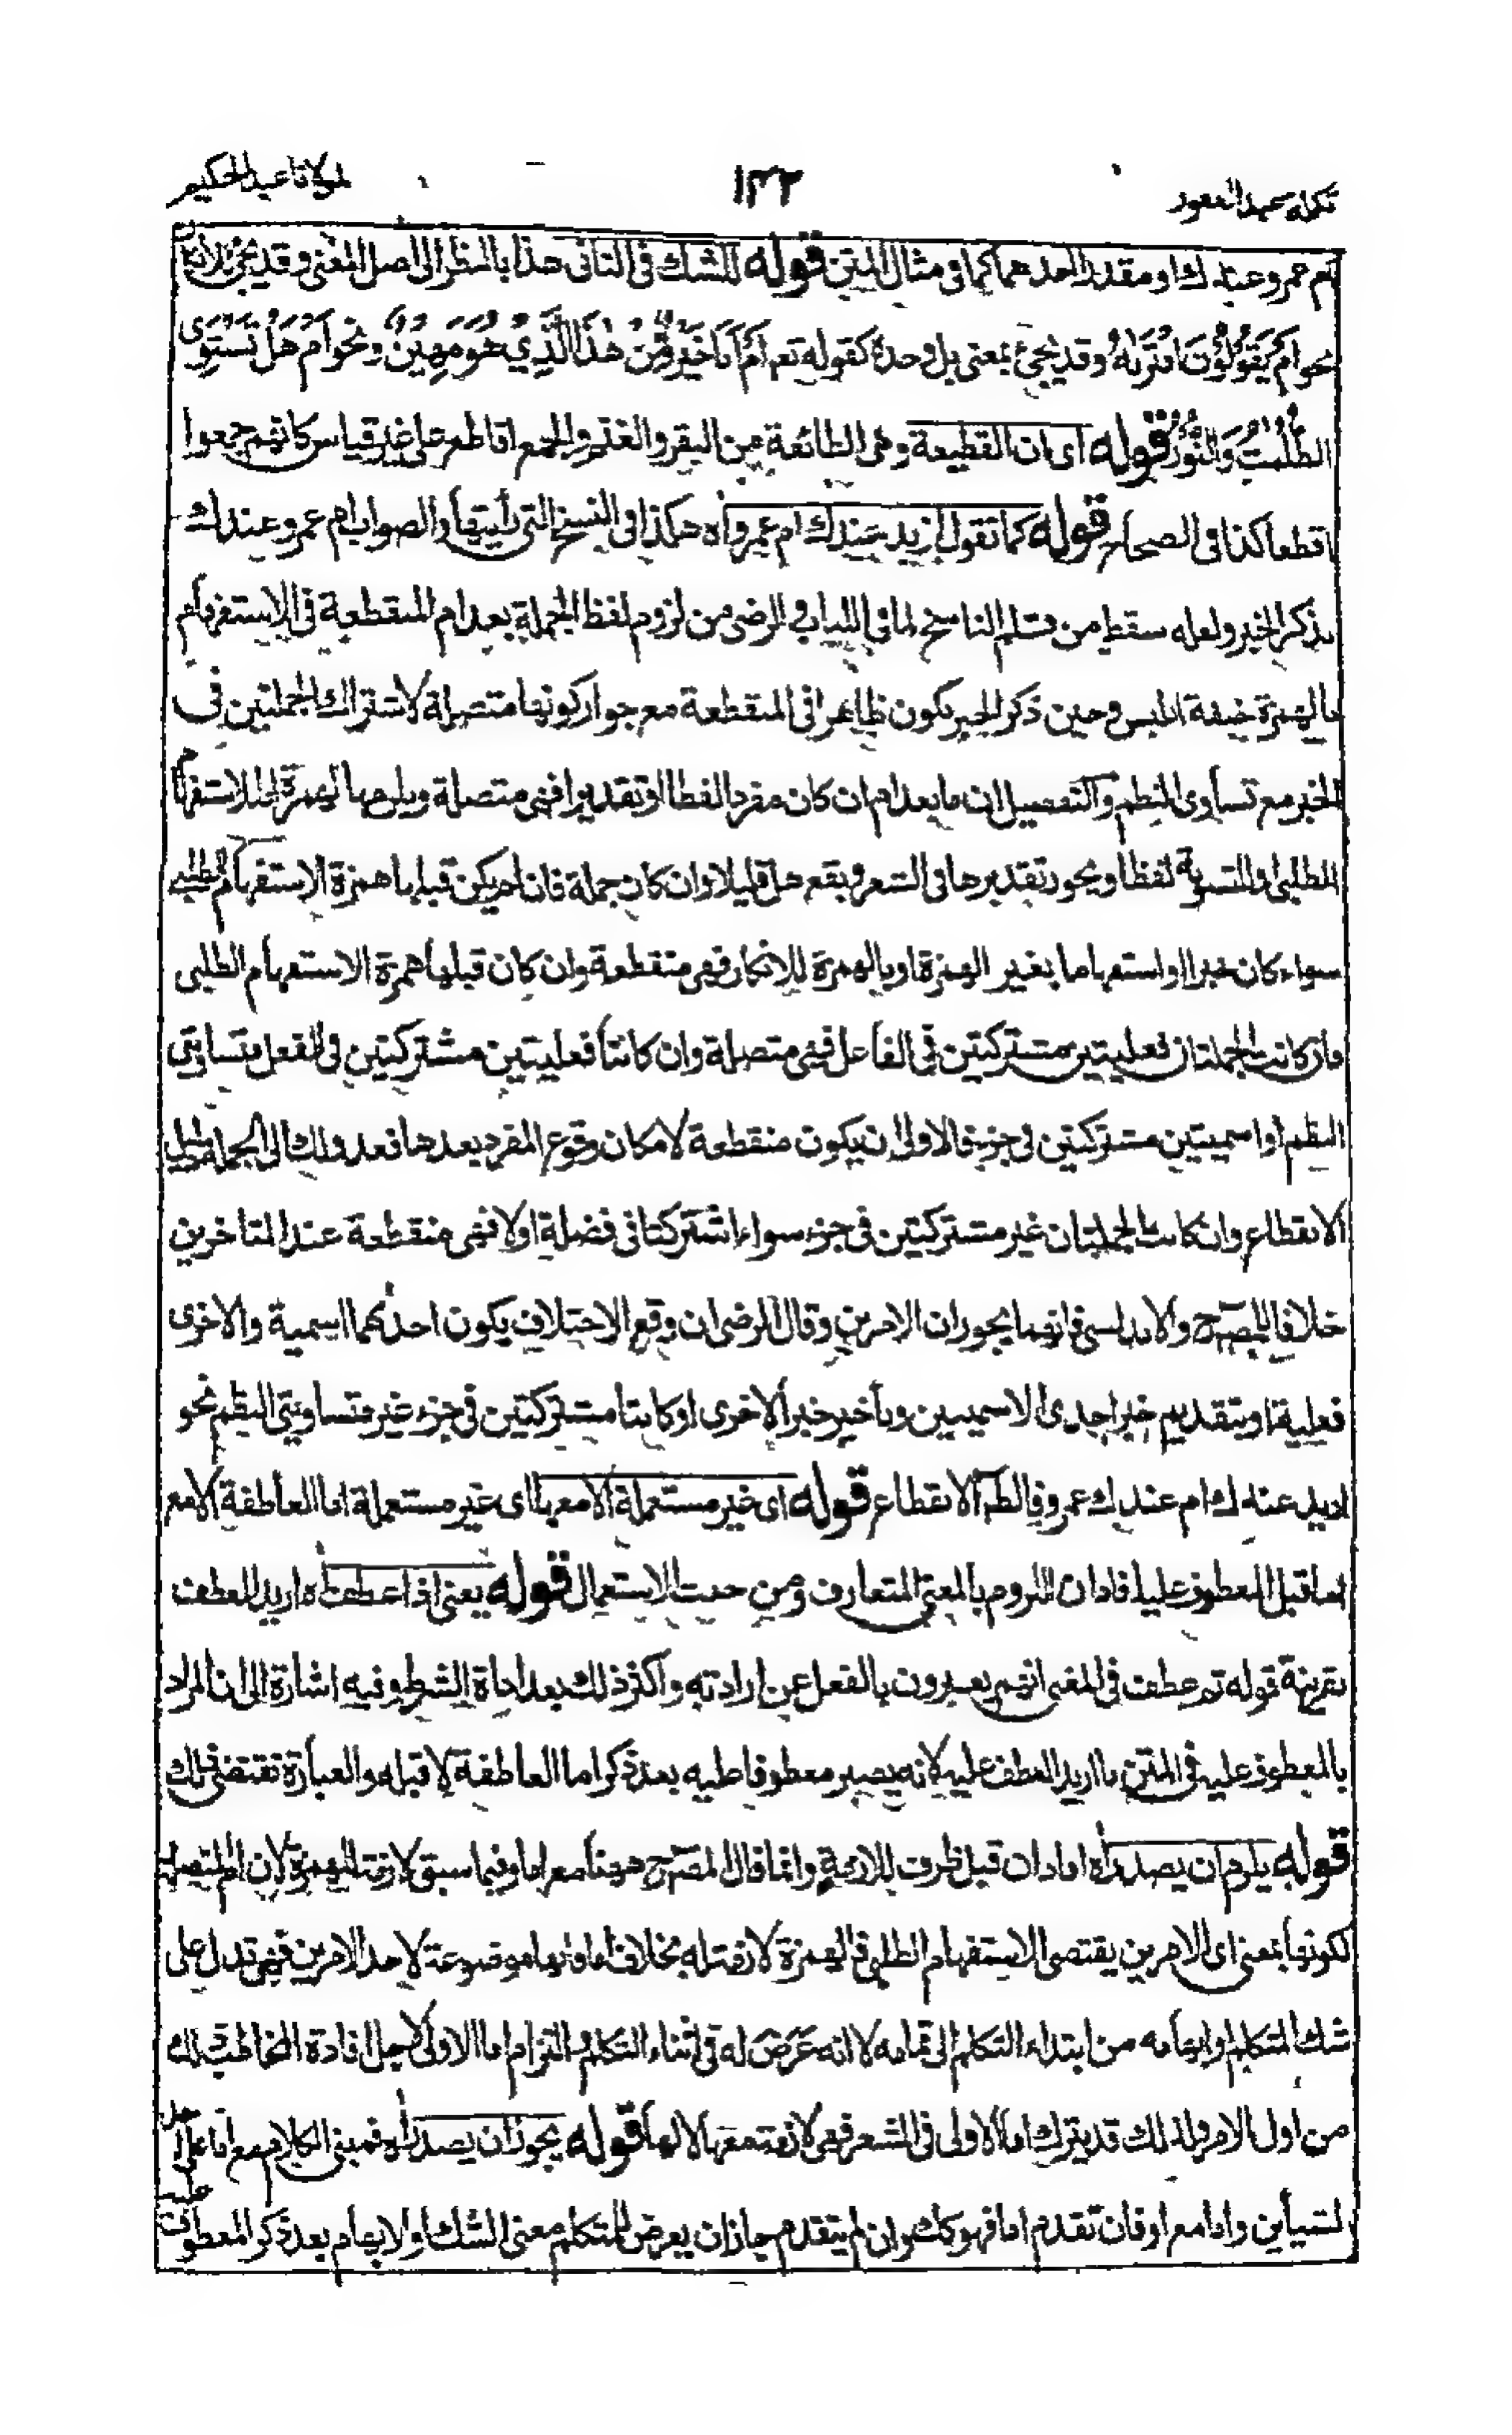 تكملة عبد الغفور
١٣٢
لمولانا عبد الحكيم
ام عمرو عندك او مقدر احدهما كما فى مثال المتن قوله للشك فى الثانى هذا بالنظر الى اصل المعنى وقد يجئ
نحو ام يقولون افتربه وقد يجئ بمعنى بل وحده كقوله تعم اَمْ اَنَا خَيْرٌ مِّنْ هٰذَا الَّذِيْ هُوَ مَهِيْنٌ ونحو اَمْ هَلْ تَسْتَوِى
الظُّلُمٰتُ وَالنُّوْرُ قوله اى ان القطيعة وهى الطائفة من البقر والغنم والجمع اقاطع على غير قياس كانهم جمعوا
اقطعا كذا فى الصحاح قوله كما تقول ازيد عندك ام عمرو اه هكذا فى النسخ التى رأيتها والصواب ام عمرو عندك
بذكر الخبر ولعله سقط من قلم الناسخ لما فى اللباب و الرضى من لزوم لفظ الجملة بعد ام المنقطعة فى الاستفهام
بالهمزة خيفة اللبس وحين ذكر الخبر يكون ظاهرا فى المنقطعة مع جواز كونها متصلة لاشتراك الجملتين فى
الخبر مع تساوى النظم والتفصيل ان ما بعد ام ان كان مفردا لفظا او تقديرا فهى متصلة ويلزمها الهمزة اما للاستفهام
الطلبى او التسوية لفظا ويجوز تقديرها فى الشعر ويقع هل قليلا وان كان جملة فان لم يكن قبلها همزة الاستفهام الطلبى
سواء كان خبرا او استفهاما بغير الهمزة او بالهمزة للانكار فهى منقطعة وان كان قبلها همزة الاستفهام الطلبى
فان كانت الجملتان فعليتين مشتركتين فى الفاعل فهى متصلة وان كانتا فعليتين مشتركتين فى الفعل متساويتى
النظم او اسميتين مشتركتين فى جزء فالاولى ان يكون منقطعة لامكان وقوع المفرد بعدها فعدولك الى الجملة دليل
الانقطاع وان كانت الجملتان غير مشتركتين فى جزء سواء اشتركتا فى فضلة اولا فهى منقطعة عند المتاخرين
خلافا للمصرح والاندلسى فانهما يجوزان الامرين وقال الرضى ان وقع الاختلاف يكون احدٰهما اسمية والاخرى
فعلية او بتقديم خبر احدى الاسميتين وتأخير خبر الاخرى او كانتا مشتركتين فى جزء غير متساويتى النظم نحو
ازيد عندك ام عندك عمرو فالظ الانقطاع قوله اى غير مستعملة الا معها اى غير مستعملة اما العاطفة الا مع
اما قبل المعطوف عليه افاد ان اللزوم بالمعنى المتعارف ومن حيث الاستعمال قوله يعنى اذا عطفت اه اريد العطف
بقرينة قوله ثم عطفت فى المغنى انهم يعبرون بالفعل عن ارادته واكثر ذلك بعد اداة الشرط وفيه اشارة الى ان المراد
بالمعطوف عليه فى المتن ما اريد العطف عليه لانه يصير معطوفا عليه بعد ذكر اما العاطفة لا قبله والعبارة تقتضى ذلك
قوله يلزم ان يصدر اه افاد ان قبل ظرف للازمة وانما قال المصرح ههنا مع اما وفيما سبق لازمة لهمزة لان ام المتصلة
لكونها بمعنى اى الامرين يقتضى الاستفهام الطلبى فالهمزة لازمة له بخلاف اما فانها موضوعة لاحد الامرين فهى تدل على
شك المتكلم او ابهامه من ابتداء التكلم الى تمامه لا انه عَرَضَ له فى اثناء التكلم والتزام اما الاولى لاجل افادة المخاطب ذلك
من اول الامر ولذلك قد يترك اما الاولى فى الشعر فهى لازمة معها لا لها قوله يجوز ان يصدر اه فمبنى الكلام مع اما على احد
الشيأين واما مع او فان تقدم اما فهو كك وان لم يتقدم جاز ان يعرض للمتكلم معنى الشك او الابهام بعد ذكر المعطوف عليه